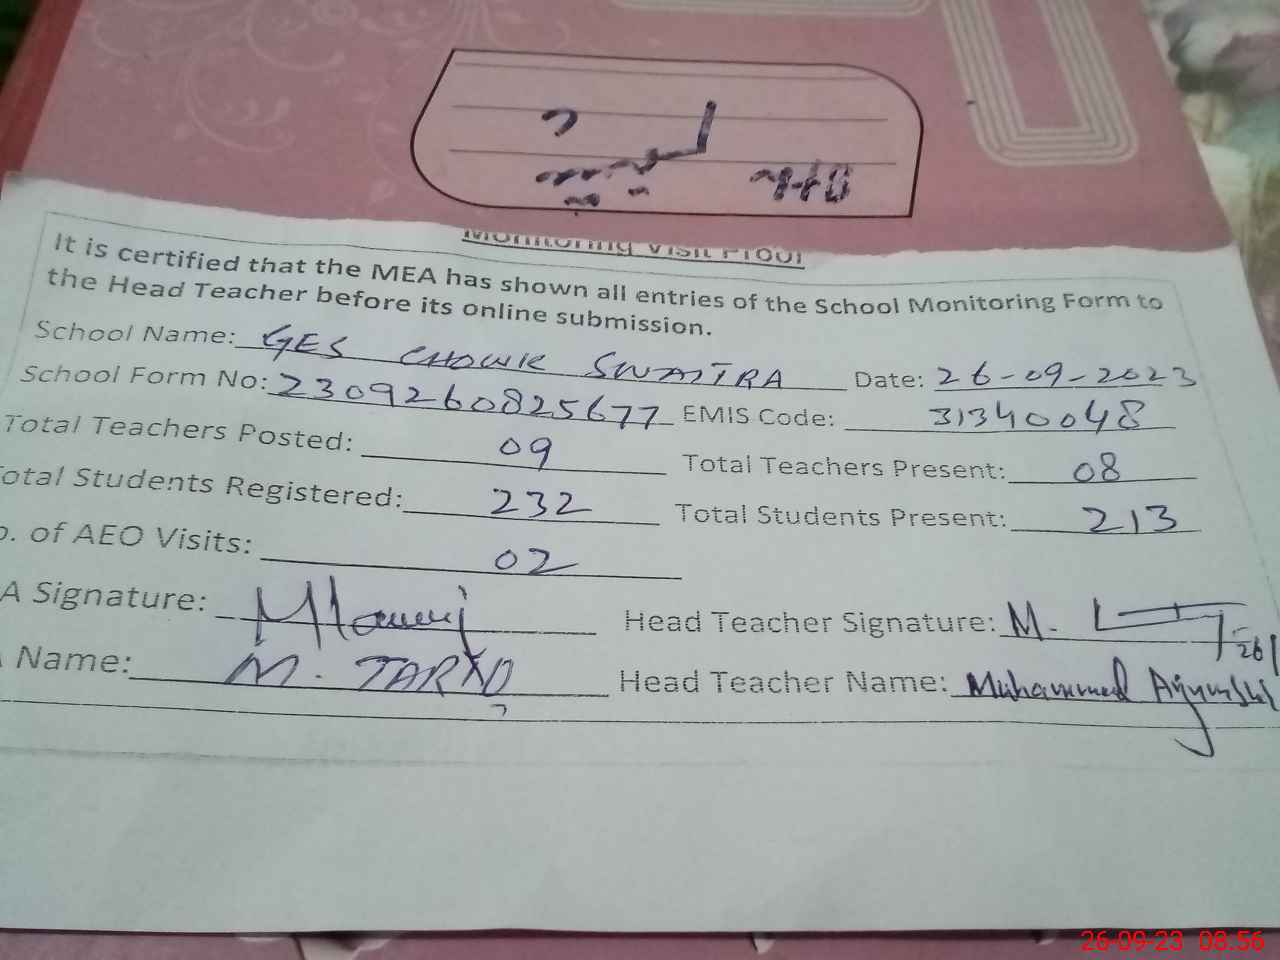 Monitoring Visit Proof
It is certified that the MEA has shown all entries of the School Monitoring Form to
the Head Teacher before its online submission.
School Name: GES CHOWK SWAITRA Date: 26-09-2023
School Form No: 2309260825677 EMIS Code: 31340048
Total Teachers Posted: 09 Total Teachers Present: 08
otal Students Registered: 232 Total Students Present: 213
o. of AEO Visits: 02
A Signature: Head Teacher Signature: M.
Name: M. TARIQ Head Teacher Name: Muhammed
26-09-23 08:56